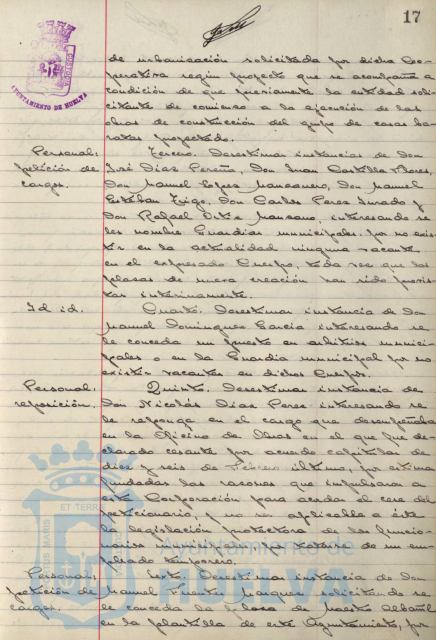 17
AYUNTAMIENTO DE HUELVA
de urbanización solicitada por dicha Coo-
perativa según proyecto que se acompaña a
condición de que previamente la entidad soli-
citante dé comienzo a la ejecución de las
obras de construcción del grupo de casas ba-
ratas proyectado.
Personal:
petición de
cargos.
Tercero. Desestimar instancias de Don
José Díaz Pereña, Don Juan Castilla Flores,
Don Manuel López Manzanero, Don Manuel
Esteban Trigo, Don Carlos Perez Jurado y
Don Rafael Ortiz Manzano, interesando se
les nombre Guardias municipales, por no exis-
tir en la actualidad ninguna vacante
en el expresado Cuerpo, toda vez que las
plazas de nueva creación han sido provis-
tas interinamente.
Id id.
Cuarto. Desestimar instancia de Don
Manuel Dominguez Garcia interesando se
le conceda un puesto en arbitrios munici-
pales o en la Guardia municipal por no
existir vacantes en dichos Cuerpos.
Personal:
reposición.
Quinto. Desestimar instancia de
Don Nicolás Díaz Perez interesando se
le reponga en el cargo que desempeñaba
en la Oficina de Obras en el que fue de-
clarado cesante por acuerdo capitular de
diez y seis de Febrero último, por estimar
fundadas las razones que impulsaron a
esta Corporación para acordar el cese del
peticionario, y no ser aplicable a éste
la legislación protectora de los funcio-
narios municipales por tratarse de un em-
pleado temporero.
Personal:
petición de
cargos.
Sexto. Desestimar instancia de Don
Manuel Fuentes Marquez solicitando se
le conceda la plaza de Maestro Albañil
en la plantilla de este Ayuntamiento, por
Ayuntamiento de
HUELVA